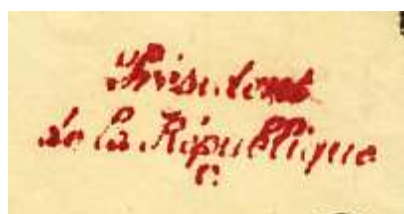 Président
de la République
C.